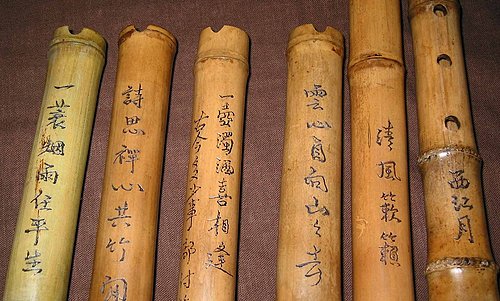 一蓑烟雨任平生
詩思禪心共竹
一壺濁酒喜相逢
古今多少事都付
雲心自向山山去
清風籟籟
西江月